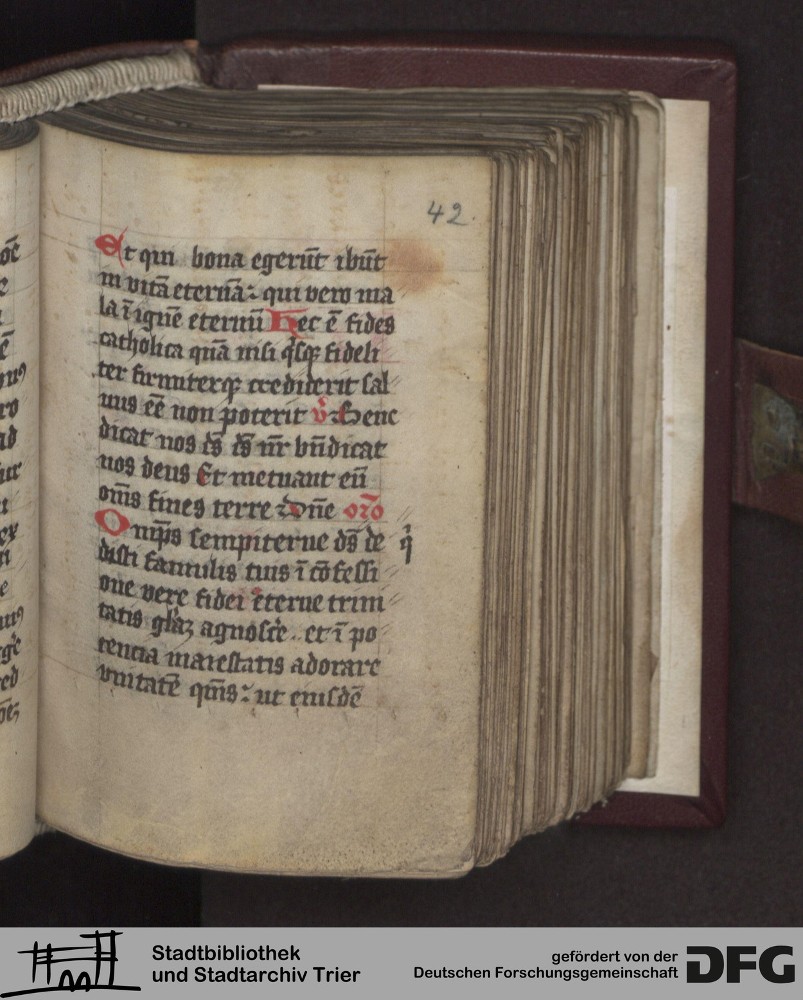 42.
Et qui bona egerūt ibūt
in vitā eternā: qui vero ma
la ī ignē eternū Hec ē fides
catholica quā nisi qͥsqꝫ fideli
ter firmiterqꝫ crediderit sal
uus eē non poterit v̊ Bene
dicat nos dS dS nr̄ bn̄dicat
nos deus Et metuant eū
om̄s fines terre Dn̄e oro
Omp̄s sempiterne dS de qͥ
disti famulis tuis ī cōfessi
one vere fidei eterne trini
tatis gl̄iaꝫ agnosce̅. et ī po
tencia maiestatis adorare
vnitatē qm̄s: ut eiusdē
Stadtbibliothek
und Stadtarchiv Trier
gefördert von der
Deutschen Forschungsgemeinschaft
DFG